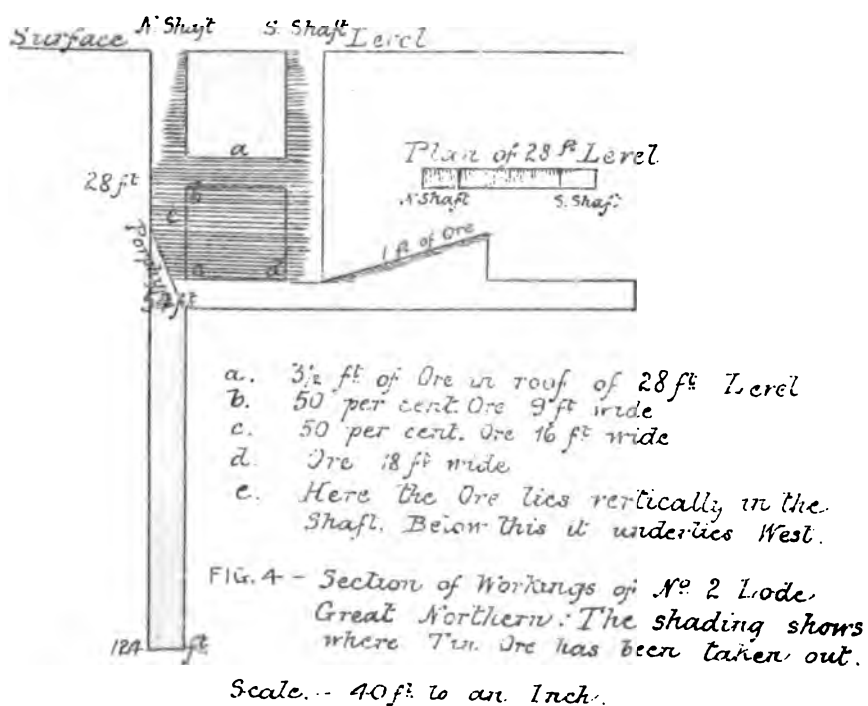 N. Shaft S. Shaft
Surface Level
a
Plan of 28 ft Level
28 ft
b
N Shaft S. Shaft
c
1 ft of Ore
Porphyry
e d
54 ft
a. 3½ ft of Ore in roof of 28 ft Level
b. 50 per cent. Ore 9 ft wide
c. 50 per cent. Ore 16 ft wide
d. Ore 18 ft wide
e. Here the Ore lies vertically in the
Shaft. Below this it underlies West.
FIG. 4 – Section of Workings of No. 2 Lode
Great Northern: The shading shows
where Tin Ore has been taken out.
124 ft
Scale. – 40 ft to an Inch.